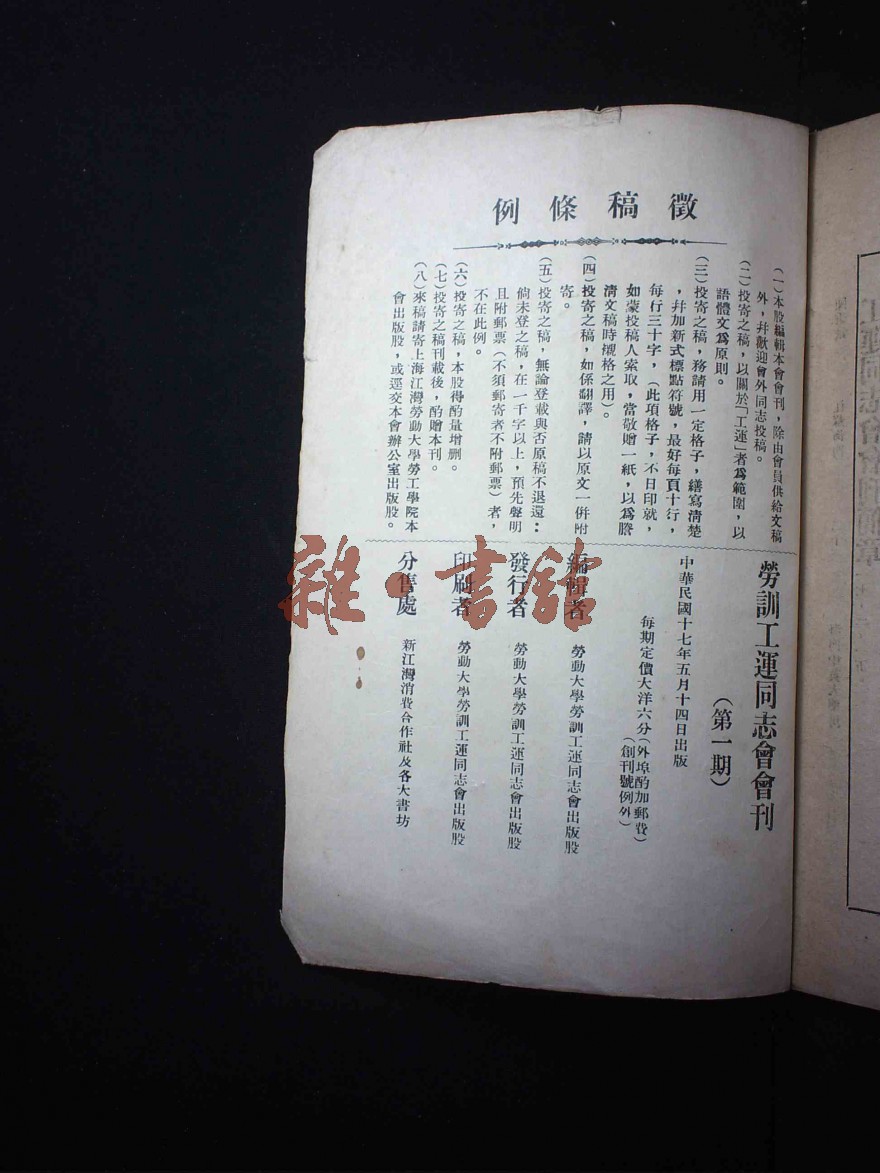 徵稿條例
（一）本股編輯本會會刊，除由會員供給文稿
外，幷歡迎會外同志投稿。
（二）投寄之稿，以關於「工運」者爲範圍，以
語體文爲原則。
（三）投寄之稿，務請用一定格子，繕寫清楚
，幷加新式標點符號，最好每頁十行，
每行三十字，（此項格子，不日印就，
如蒙投稿人索取，當敬贈一紙，以爲謄
淸文稿時襯格之用）。
（四）投寄之稿，如係翻譯，請以原文一倂附
寄。
（五）投寄之稿，無論登載與否原稿不退還：
倘未登之稿，在一千字以上，預先聲明
且附郵票（不須郵寄者不附郵票）者，
不在此例。
（六）投寄之稿，本股得酌量增删。
（七）投寄之稿刊載後，酌贈本刊。
（八）來稿請寄上海江灣勞動大學勞工學院本
會出版股，或逕交本會辦公室出版股。
勞訓工運同志會會刊
（第一期）
中華民國十七年五月十四日出版
每期定價大洋六分（外埠酌加郵費）
（創刊號例外）
編輯者　勞動大學勞訓工運同志會出版股
發行者　勞動大學勞訓工運同志會出版股
印刷者　勞動大學勞訓工運同志會出版股
分售處　新江灣消費合作社及各大書坊
雜·書館